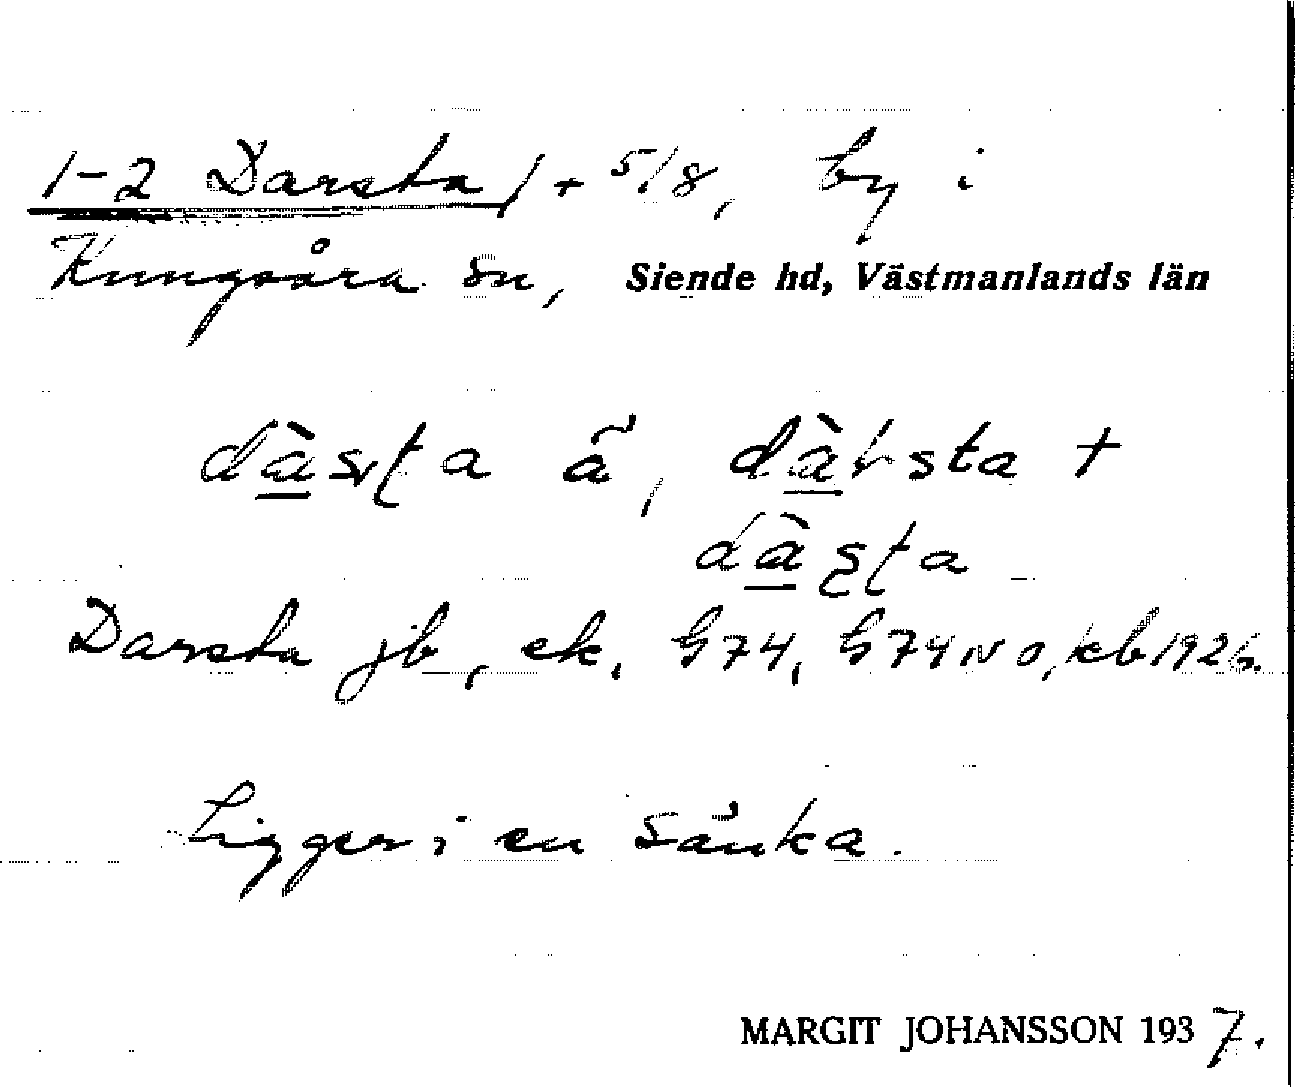 1-2 Darsta / + 5/8, by i
Kungsåra sn, Siende hd, Västmanlands län
dàsta ä, dàrsta +
dàsta
Darsta jb, ek. G74, G74 NO, kb 1926.
Ligger i en sänka.
MARGIT JOHANSSON 1937.